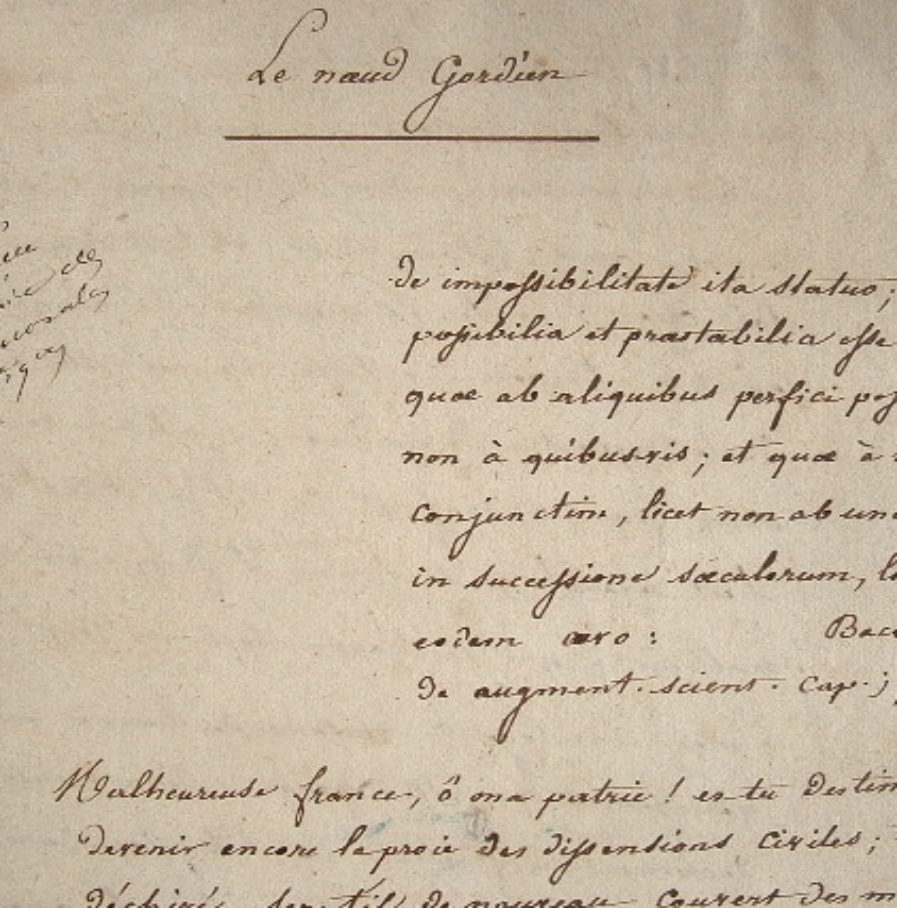 Le nœud Gordien
de impossibilitate ita statuo;
possibilia et præstabilia esse
quæ ab aliquibus perfici
non à quibusvis; et quæ à
conjunctim, licet non ab
in successione sæculorum,
eodem ævo :
de augment. scient. cap.
Malheureuse france, ô ma patrie ! es-tu
devenir encore la proie des dissentions civiles;
de nouveau couvert des